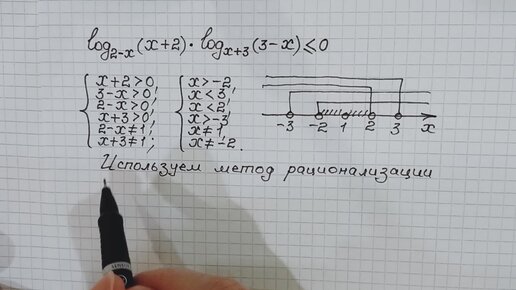 log₂₋ₓ(x+2)·logₓ₊₃(3−x)≤0
x+2>0,
3−x>0,
2−x>0,
x+3>0,
2−x≠1,
x+3≠1;
x>−2,
x<3,
x<2,
x>−3,
x≠1,
x≠−2.
−3 −2 1 2 3 x
Используем метод рационализации